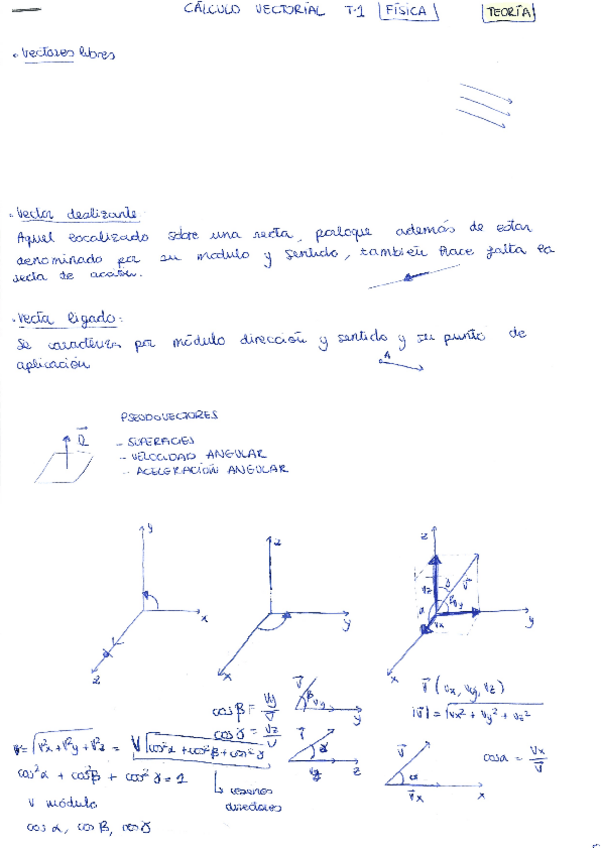 CÁLCULO VECTORIAL T.1 FÍSICA TEORÍA
• Vectores libres
• Vector deslizante:
Aquel localizado sobre una recta, porloque además de estar
denominado por su modulo y sentido, también hace falta la
recta de acción.
• Vector ligado:
Se caracteriza por módulo dirección y sentido y su punto de
aplicación
A
PSEUDOVECTORES
- SUPERFICIES
- VELOCIDAD ANGULAR
- ACELERACIÓN ANGULAR
y
x
z
z
y
x
z
y
x
cos β = Vy/V
V β Vy y
cos γ = Vz/V
V γ z
V⃗ (Vx, Vy, Vz)
|V⃗| = √Vx² + Vy² + Vz²
V = √V²x + V²y + V²z = V √cos²α + cos²β + cos²γ
cos²α + cos²β + cos²γ = 1
V módulo
cos α, cos β, cos γ
cosenos
directores
V⃗ α V⃗x x
cos α = Vx/V